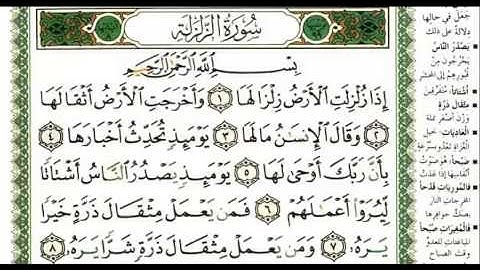 سُورَةُ الزَّلْزَلَةِ
بِسْمِ اللَّهِ الرَّحْمَٰنِ الرَّحِيمِ
إِذَا زُلْزِلَتِ الْأَرْضُ زِلْزَالَهَا ١ وَأَخْرَجَتِ الْأَرْضُ أَثْقَالَهَا
٢ وَقَالَ الْإِنسَٰنُ مَا لَهَا ٣ يَوْمَئِذٍ تُحَدِّثُ أَخْبَارَهَا ٤
بِأَنَّ رَبَّكَ أَوْحَىٰ لَهَا ٥ يَوْمَئِذٍ يَصْدُرُ النَّاسُ أَشْتَاتًا
لِّيُرَوْا أَعْمَٰلَهُمْ ٦ فَمَن يَعْمَلْ مِثْقَالَ ذَرَّةٍ خَيْرًا
يَرَهُ ٧ وَمَن يَعْمَلْ مِثْقَالَ ذَرَّةٍ شَرًّا يَرَهُ ٨
جَعَلَ في حالِها
دلالةً على ذلك
يَصْدُرُ النَّاسُ
يَخْرُجون من
قُبورِهم إلى المحشر
أشتاتاً: متفرّقين
مثقال ذرّة
وزنَ أصغرِ نملة
العاديات: خيل
الغزاة تعدو بسرعة
ضبحاً: هو صوتُ
أنفاسها إذا عدت
فالموريات قدحاً
المخرجات النار
بصكّ حوافرها
فالمغيرات صبحاً
المباغتات للعدو
وقت الصباح